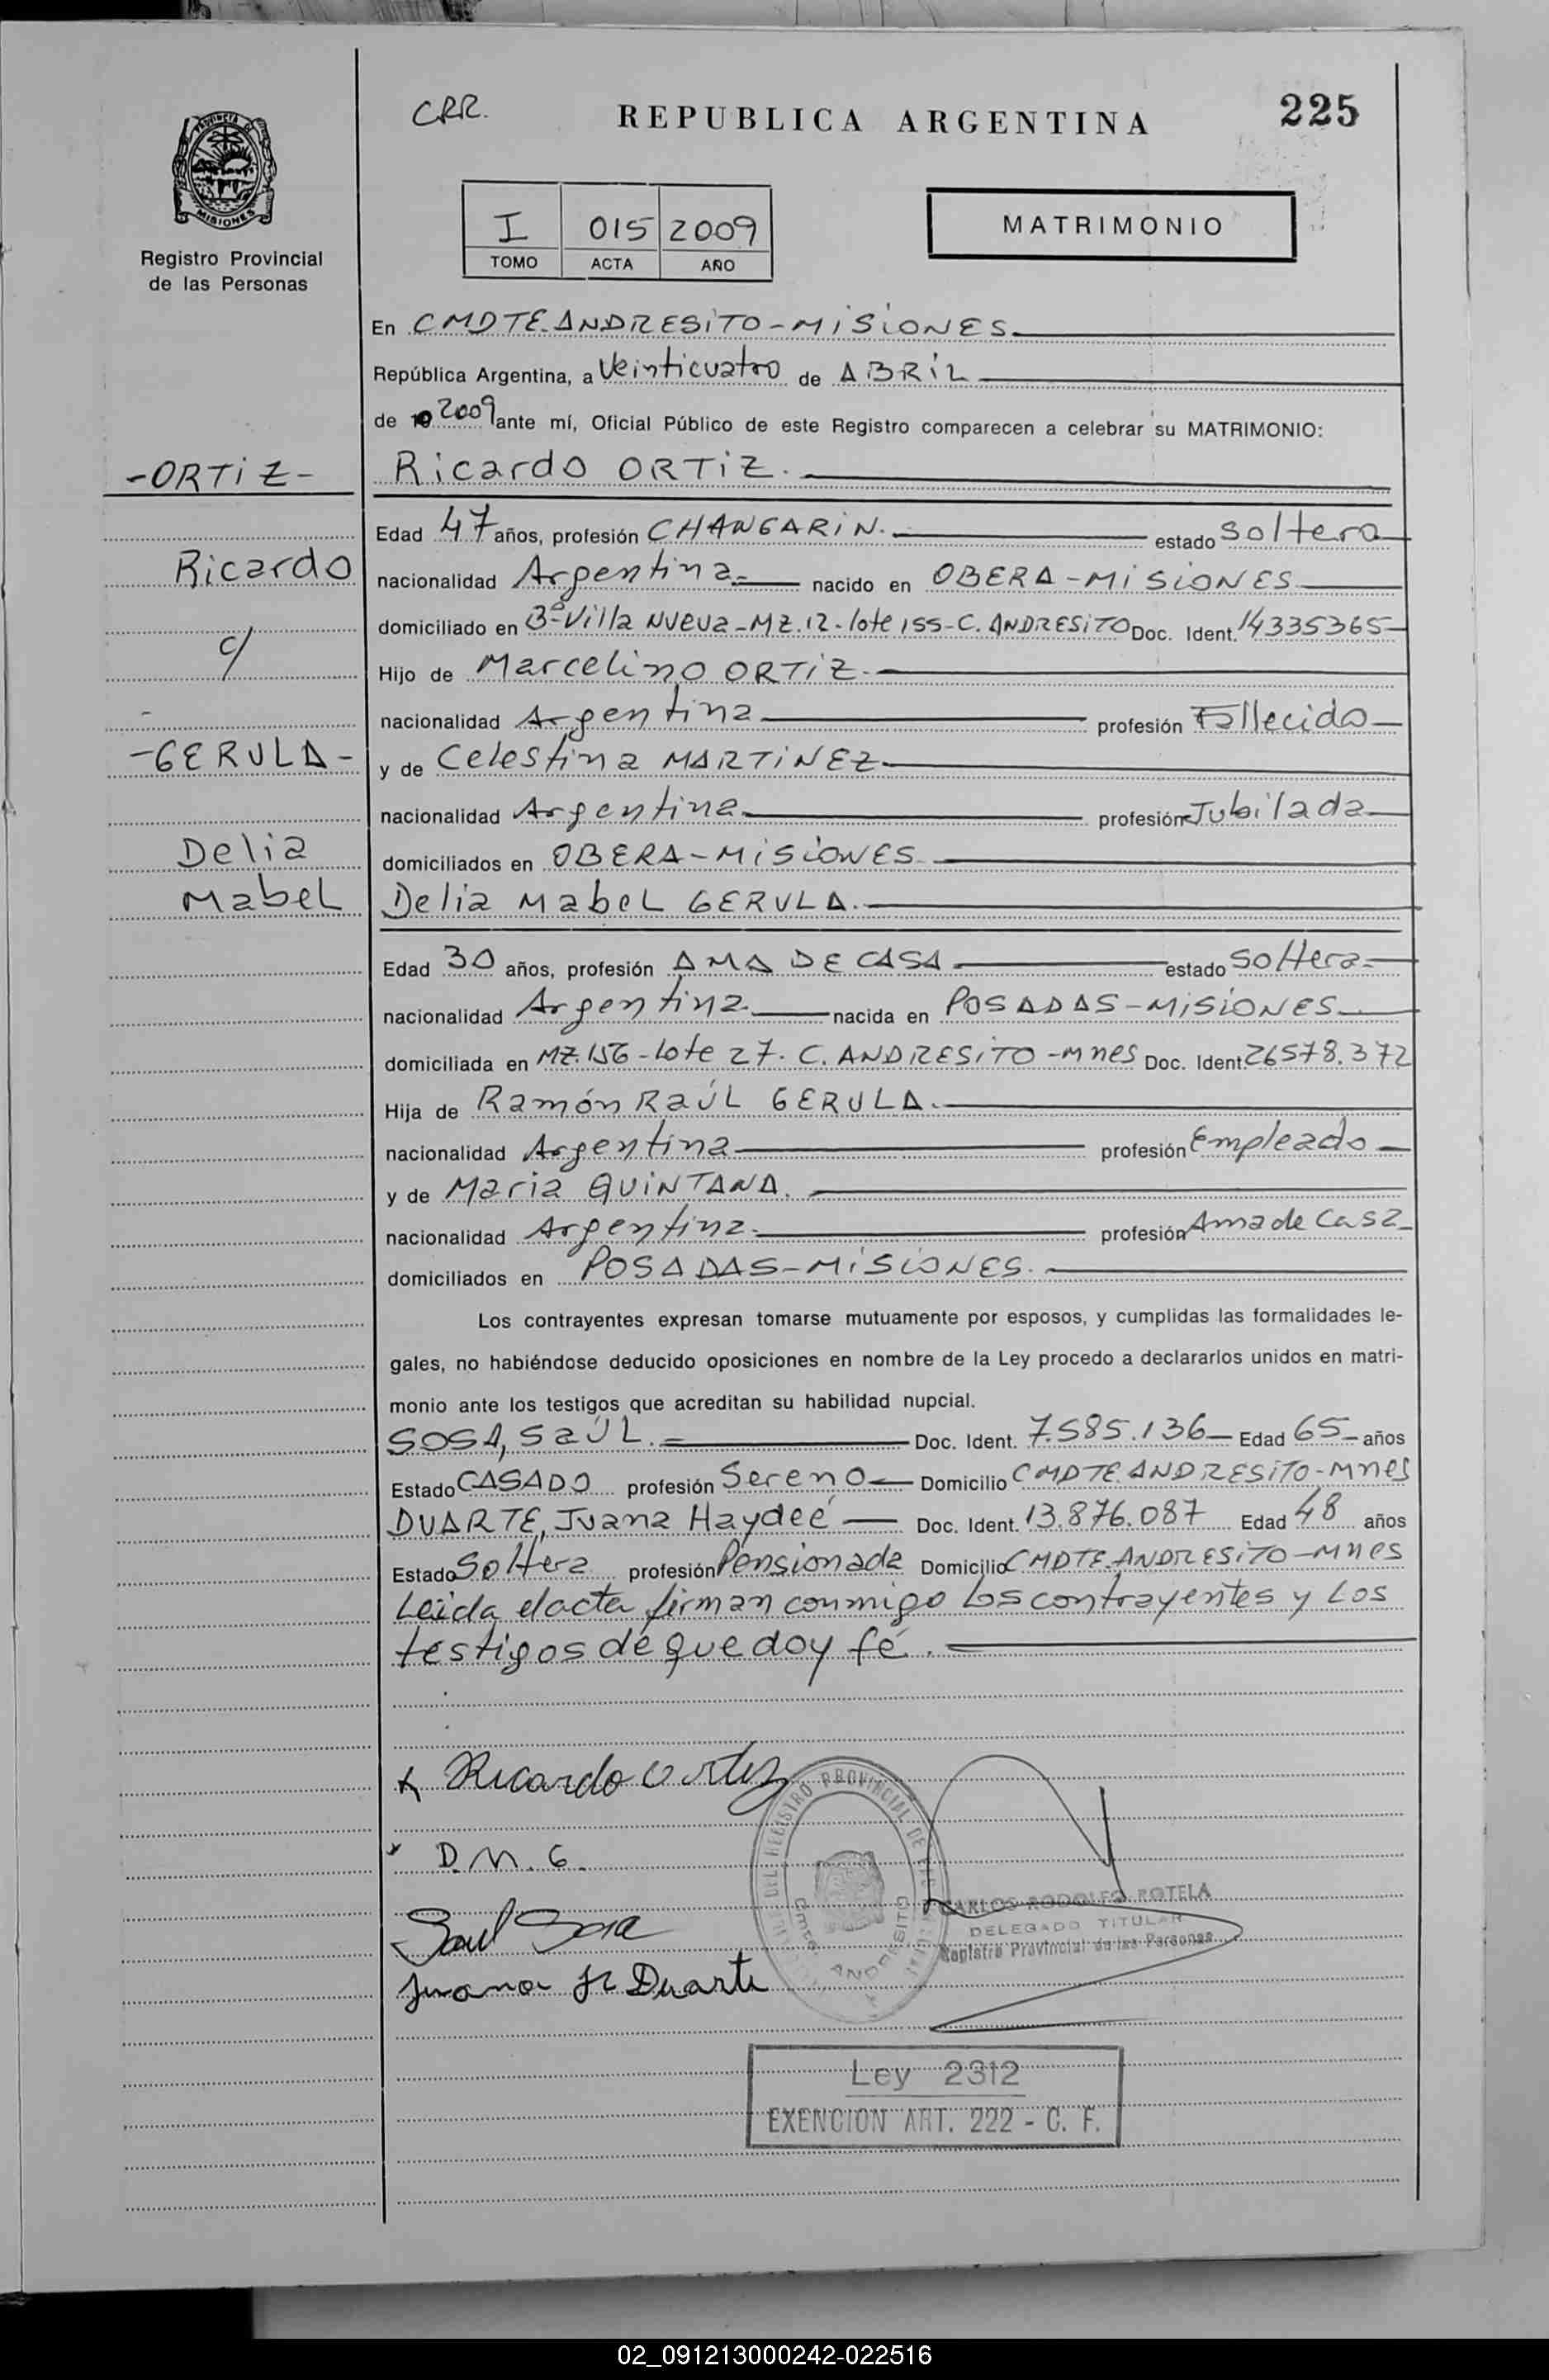 CRR.
REPUBLICA ARGENTINA
225
PROVINCIA DE
MISIONES
Registro Provincial
de las Personas
I 015 2009
TOMO ACTA AÑO
MATRIMONIO
En CMDTE. ANDRESITO - MISIONES.
República Argentina, a Veinticuatro de ABRIL
de 2009 ante mí, Oficial Público de este Registro comparecen a celebrar su MATRIMONIO:
-ORTIZ-
Ricardo ORTIZ.
Edad 47 años, profesión CHANGARIN. estado Soltero
Ricardo
nacionalidad Argentina nacido en OBERA - MISIONES
domiciliado en Bº Villa NUEVA - MZ. 12 - lote 155 - C. ANDRESITO Doc. Ident. 14335365
c/
Hijo de Marcelino ORTIZ.
nacionalidad Argentina profesión Fallecido
-GERULA-
y de Celestina MARTINEZ
nacionalidad Argentina profesión Jubilada
Delia
domiciliados en OBERA - MISIONES
Mabel
Delia Mabel GERULA.
Edad 30 años, profesión AMA DE CASA estado Soltera
nacionalidad Argentina nacida en POSADAS - MISIONES
domiciliada en MZ. 156 - lote 27. C. ANDRESITO - Mnes Doc. Ident. 26578.372
Hija de Ramón Raúl GERULA.
nacionalidad Argentina profesión Empleado
y de Maria QUINTANA.
nacionalidad Argentina profesión Ama de Casa
domiciliados en POSADAS - MISIONES.
Los contrayentes expresan tomarse mutuamente por esposos, y cumplidas las formalidades le-
gales, no habiéndose deducido oposiciones en nombre de la Ley procedo a declararlos unidos en matri-
monio ante los testigos que acreditan su habilidad nupcial.
SOSA, Saúl. Doc. Ident. 7.585.136 Edad 65 años
Estado CASADO profesión Sereno Domicilio CMDTE. ANDRESITO - Mnes
DUARTE, Juana Haydeé Doc. Ident. 13.876.087 Edad 48 años
Estado Soltera profesión Pensionada Domicilio CMDTE. ANDRESITO - Mnes
Leída el acta firman conmigo los contrayentes y los
testigos de que doy fé.
x Ricardo Ortiz
x D.M.G.
Saul Sosa
Juana H Duarte
DEL REGISTRO PROVINCIAL DE
CMDTE ANDRESITO
CARLOS RODOLFO ROTELA
DELEGADO TITULAR
Registro Provincial de las Personas
Ley 2312
EXENCION ART. 222 - C. F.
02_091213000242-022516